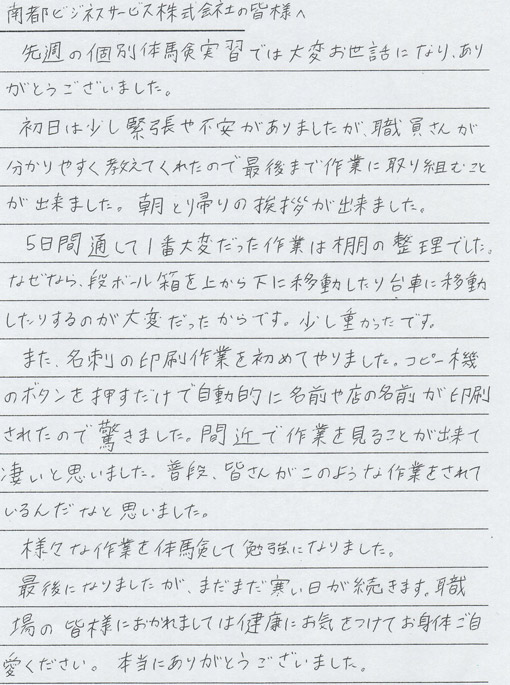 南都ビジネスサービス株式会社の皆様へ
先週の個別体験実習では大変お世話になり、あり
がとうございました。
初日は少し緊張や不安がありましたが、職員さんが
分かりやすく教えてくれたので最後まで作業に取り組むこと
が出来ました。朝と帰りの挨拶が出来ました。
5日間通して1番大変だった作業は棚の整理でした。
なぜなら、段ボール箱を上から下に移動したり台車に移動
したりするのが大変だったからです。少し重かったです。
また、名刺の印刷作業を初めてやりました。コピー機
のボタンを押すだけで自動的に名前や店の名前が印刷
されたので驚きました。間近で作業を見ることが出来て
凄いと思いました。普段、皆さんがこのような作業をされて
いるんだなと思いました。
様々な作業を体験して勉強になりました。
最後になりましたが、まだまだ寒い日が続きます。職
場の皆様におかれましては健康にお気をつけてお身体ご自
愛ください。本当にありがとうございました。